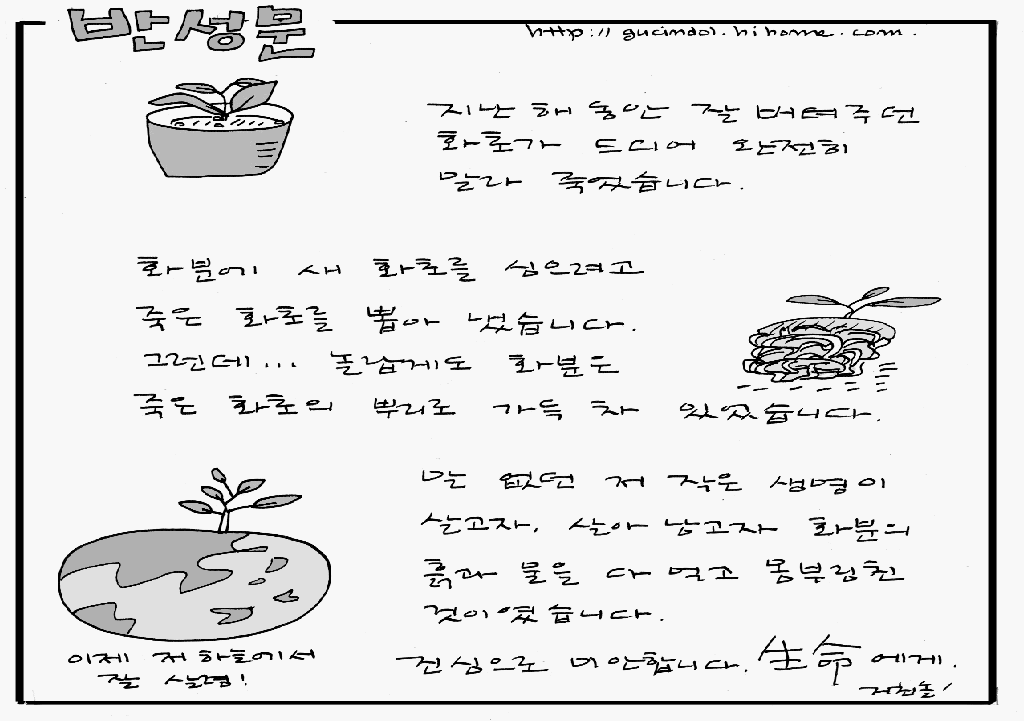 반성문
http://gucindol.hihome.com.
지난 해 동안 잘 버텨주던
화초가 드디어 완전히
말라 죽었습니다.
화분에 새 화초를 심으려고
죽은 화초를 뽑아 냈습니다.
그런데... 놀랍게도 화분은
죽은 화초의 뿌리로 가득 차 있었습니다.
말 없던 저 작은 생명이
살고자, 살아 남고자 화분의
흙과 물을 다 먹고 몸부림친
것이었습니다.
진심으로 미안합니다. 生命에게.
이제 저 하늘에서
잘 살렴!